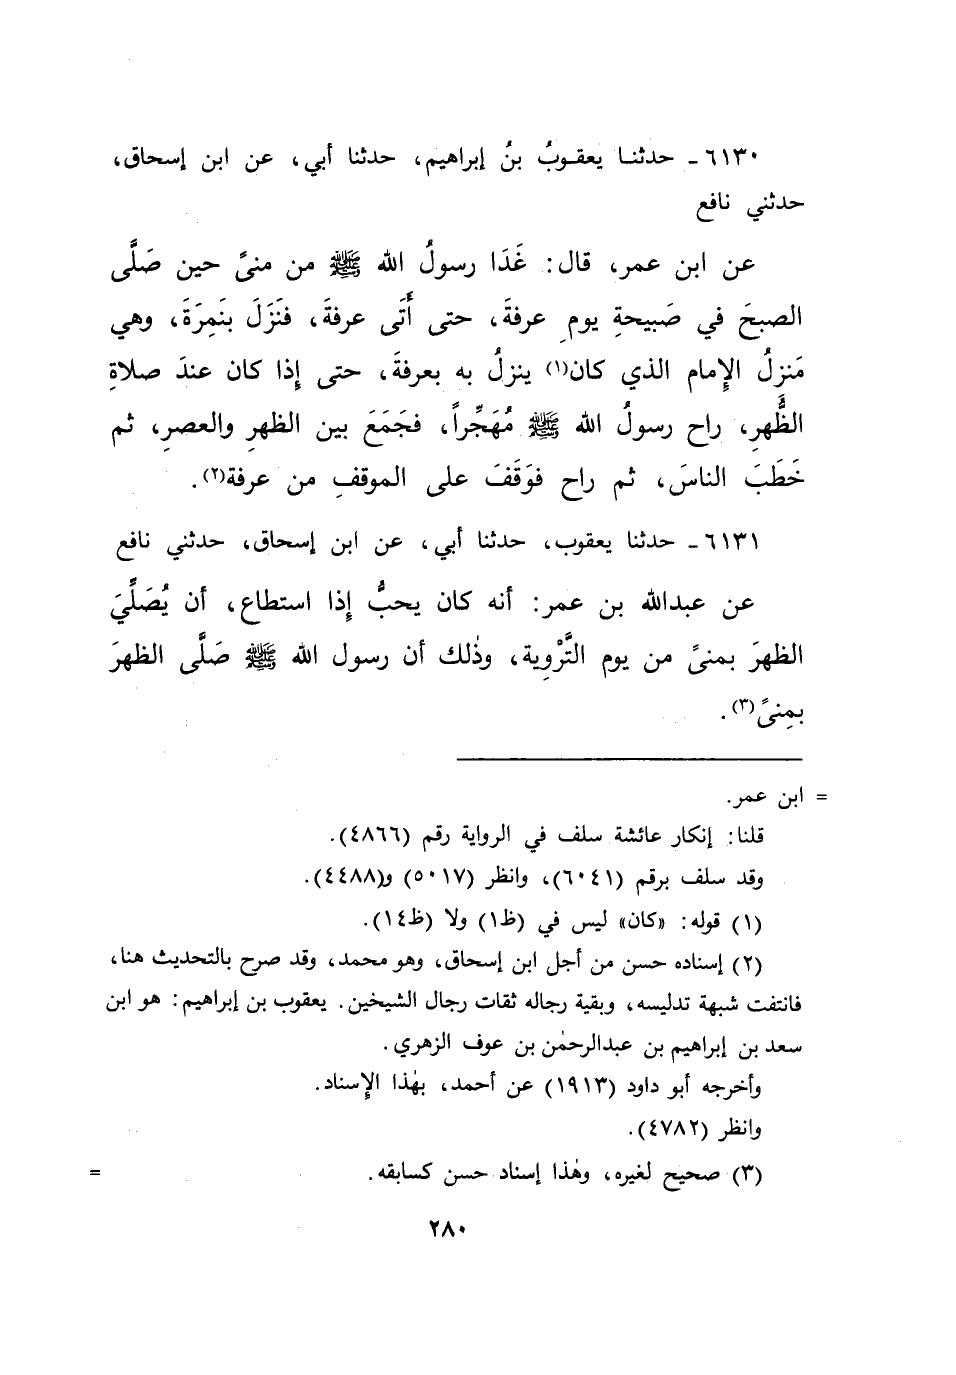 ٦١٣٠ـ حدثنـا يعقـوبُ بنُ إبراهيم، حدثنا أبي، عن ابن إسحاق،
حدثني نافع
عن ابن عمر، قال: غَدَا رسولُ الله ﷺ من منىً حين صَلَّى
الصبحَ في صَبيحةِ يومِ عرفةَ، حتى أَتَى عرفةَ، فنَزَلَ بنَمِرَةَ، وهي
مَنزِلُ الإِمام الذي كان(١) ينزلُ به بعرفةَ، حتى إِذا كان عندَ صلاةِ
الظُّهرِ، راح رسولُ الله ﷺ مُهَجِّراً، فجَمَعَ بين الظهرِ والعصرِ، ثم
خَطَبَ الناسَ، ثم راح فوَقَفَ على الموقفِ من عرفة(٢).
٦١٣١ـ حدثنا يعقوب، حدثنا أبي، عن ابن إسحاق، حدثني نافع
عن عبدالله بن عمر: أنه كان يحبُّ إِذا استطاع، أن يُصَلِّيَ
الظهرَ بمنىً من يوم التَّرْوِية، وذٰلك أن رسول الله ﷺ صَلَّى الظهرَ
بمِنىً(٣).
= ابن عمر.
قلنا: إنكار عائشة سلف في الرواية رقم (٤٨٦٦).
وقد سلف برقم (٦٠٤١)، وانظر (٥٠١٧) و(٤٤٨٨).
(١) قوله: «كان» ليس في (ظ١) ولا (ظ١٤).
(٢) إسناده حسن من أجل ابن إسحاق، وهو محمد، وقد صرح بالتحديث هنا،
فانتفت شبهة تدليسه، وبقية رجاله ثقات رجال الشيخين. يعقوب بن إبراهيم: هو ابن
سعد بن إبراهيم بن عبدالرحمٰن بن عوف الزهري.
وأخرجه أبو داود (١٩١٣) عن أحمد، بهٰذا الإِسناد.
وانظر (٤٧٨٢).
(٣) صحيح لغيره، وهٰذا إسناد حسن كسابقه. =
٢٨٠